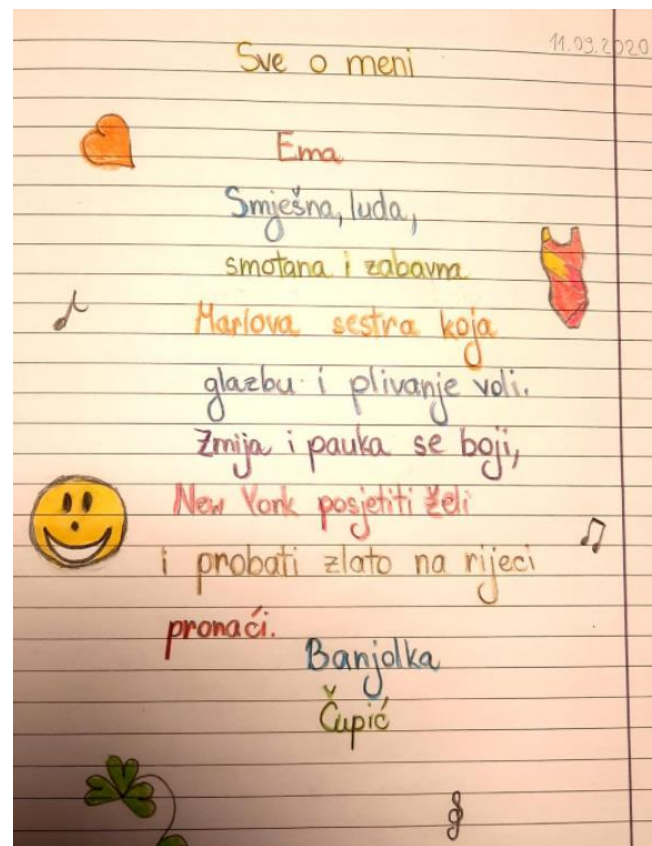 11.09.2020
Sve o meni
Ema
Smješna, luda,
smotana i zabavna
Marlova sestra koja
glazbu i plivanje voli.
Zmija i pauka se boji,
New York posjetiti želi
i probati zlato na rijeci
pronaći.
Banjolka
Čupić